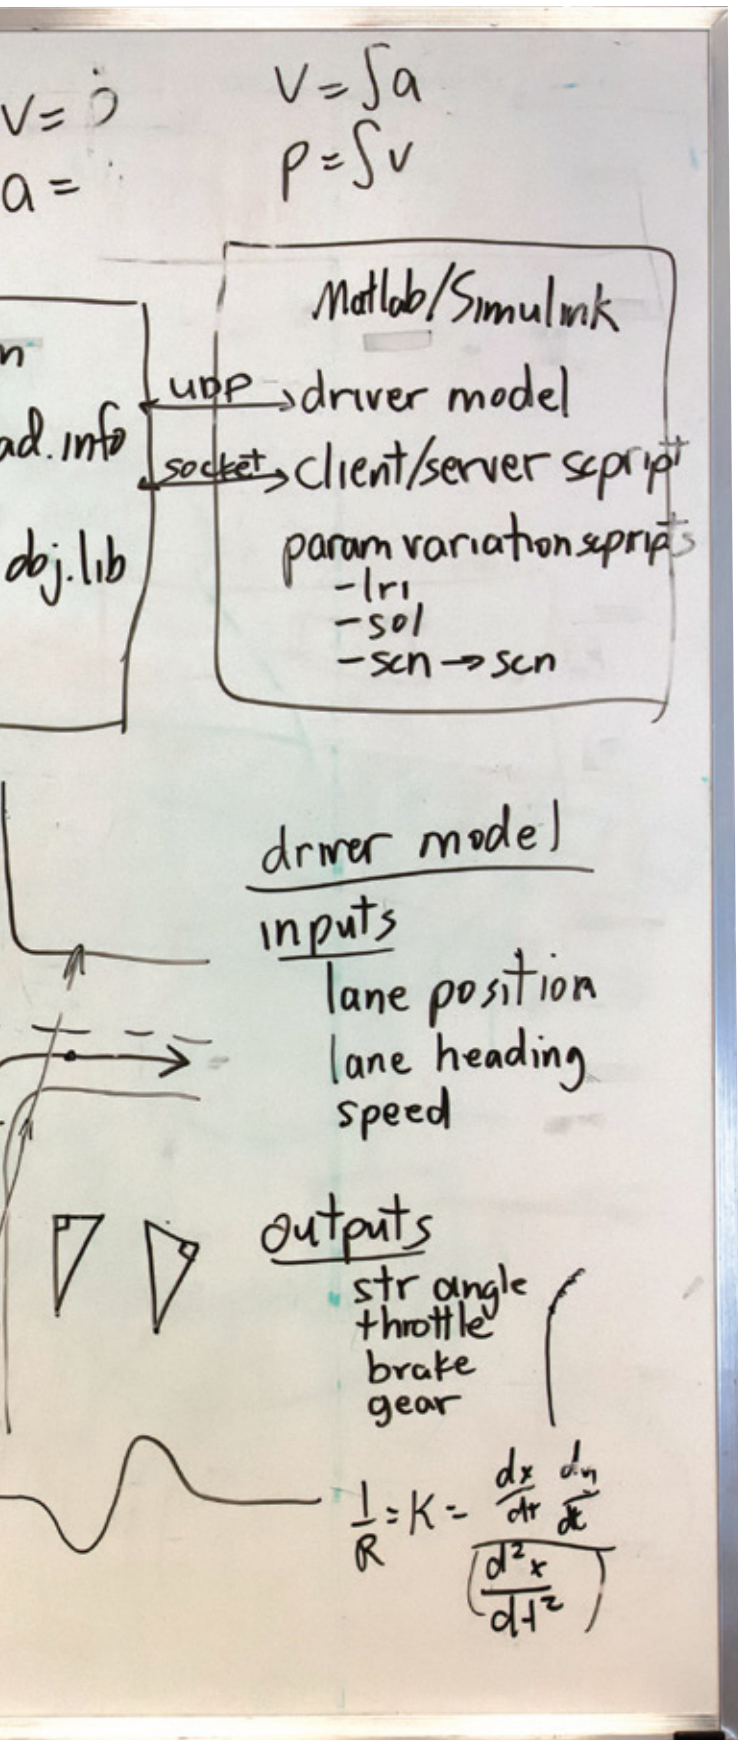 v = ṗ
a =
v = ∫a
p = ∫v
n
ad.info
obj.lib
UDP
socket
Matlab/Simulink
driver model
client/server scpript
param variation scpripts
-lri
-sol
-scn → scn
driver model
inputs
lane position
lane heading
speed
outputs
str angle
throttle
brake
gear
1/R = K =
dx/dt
d²x/dt²